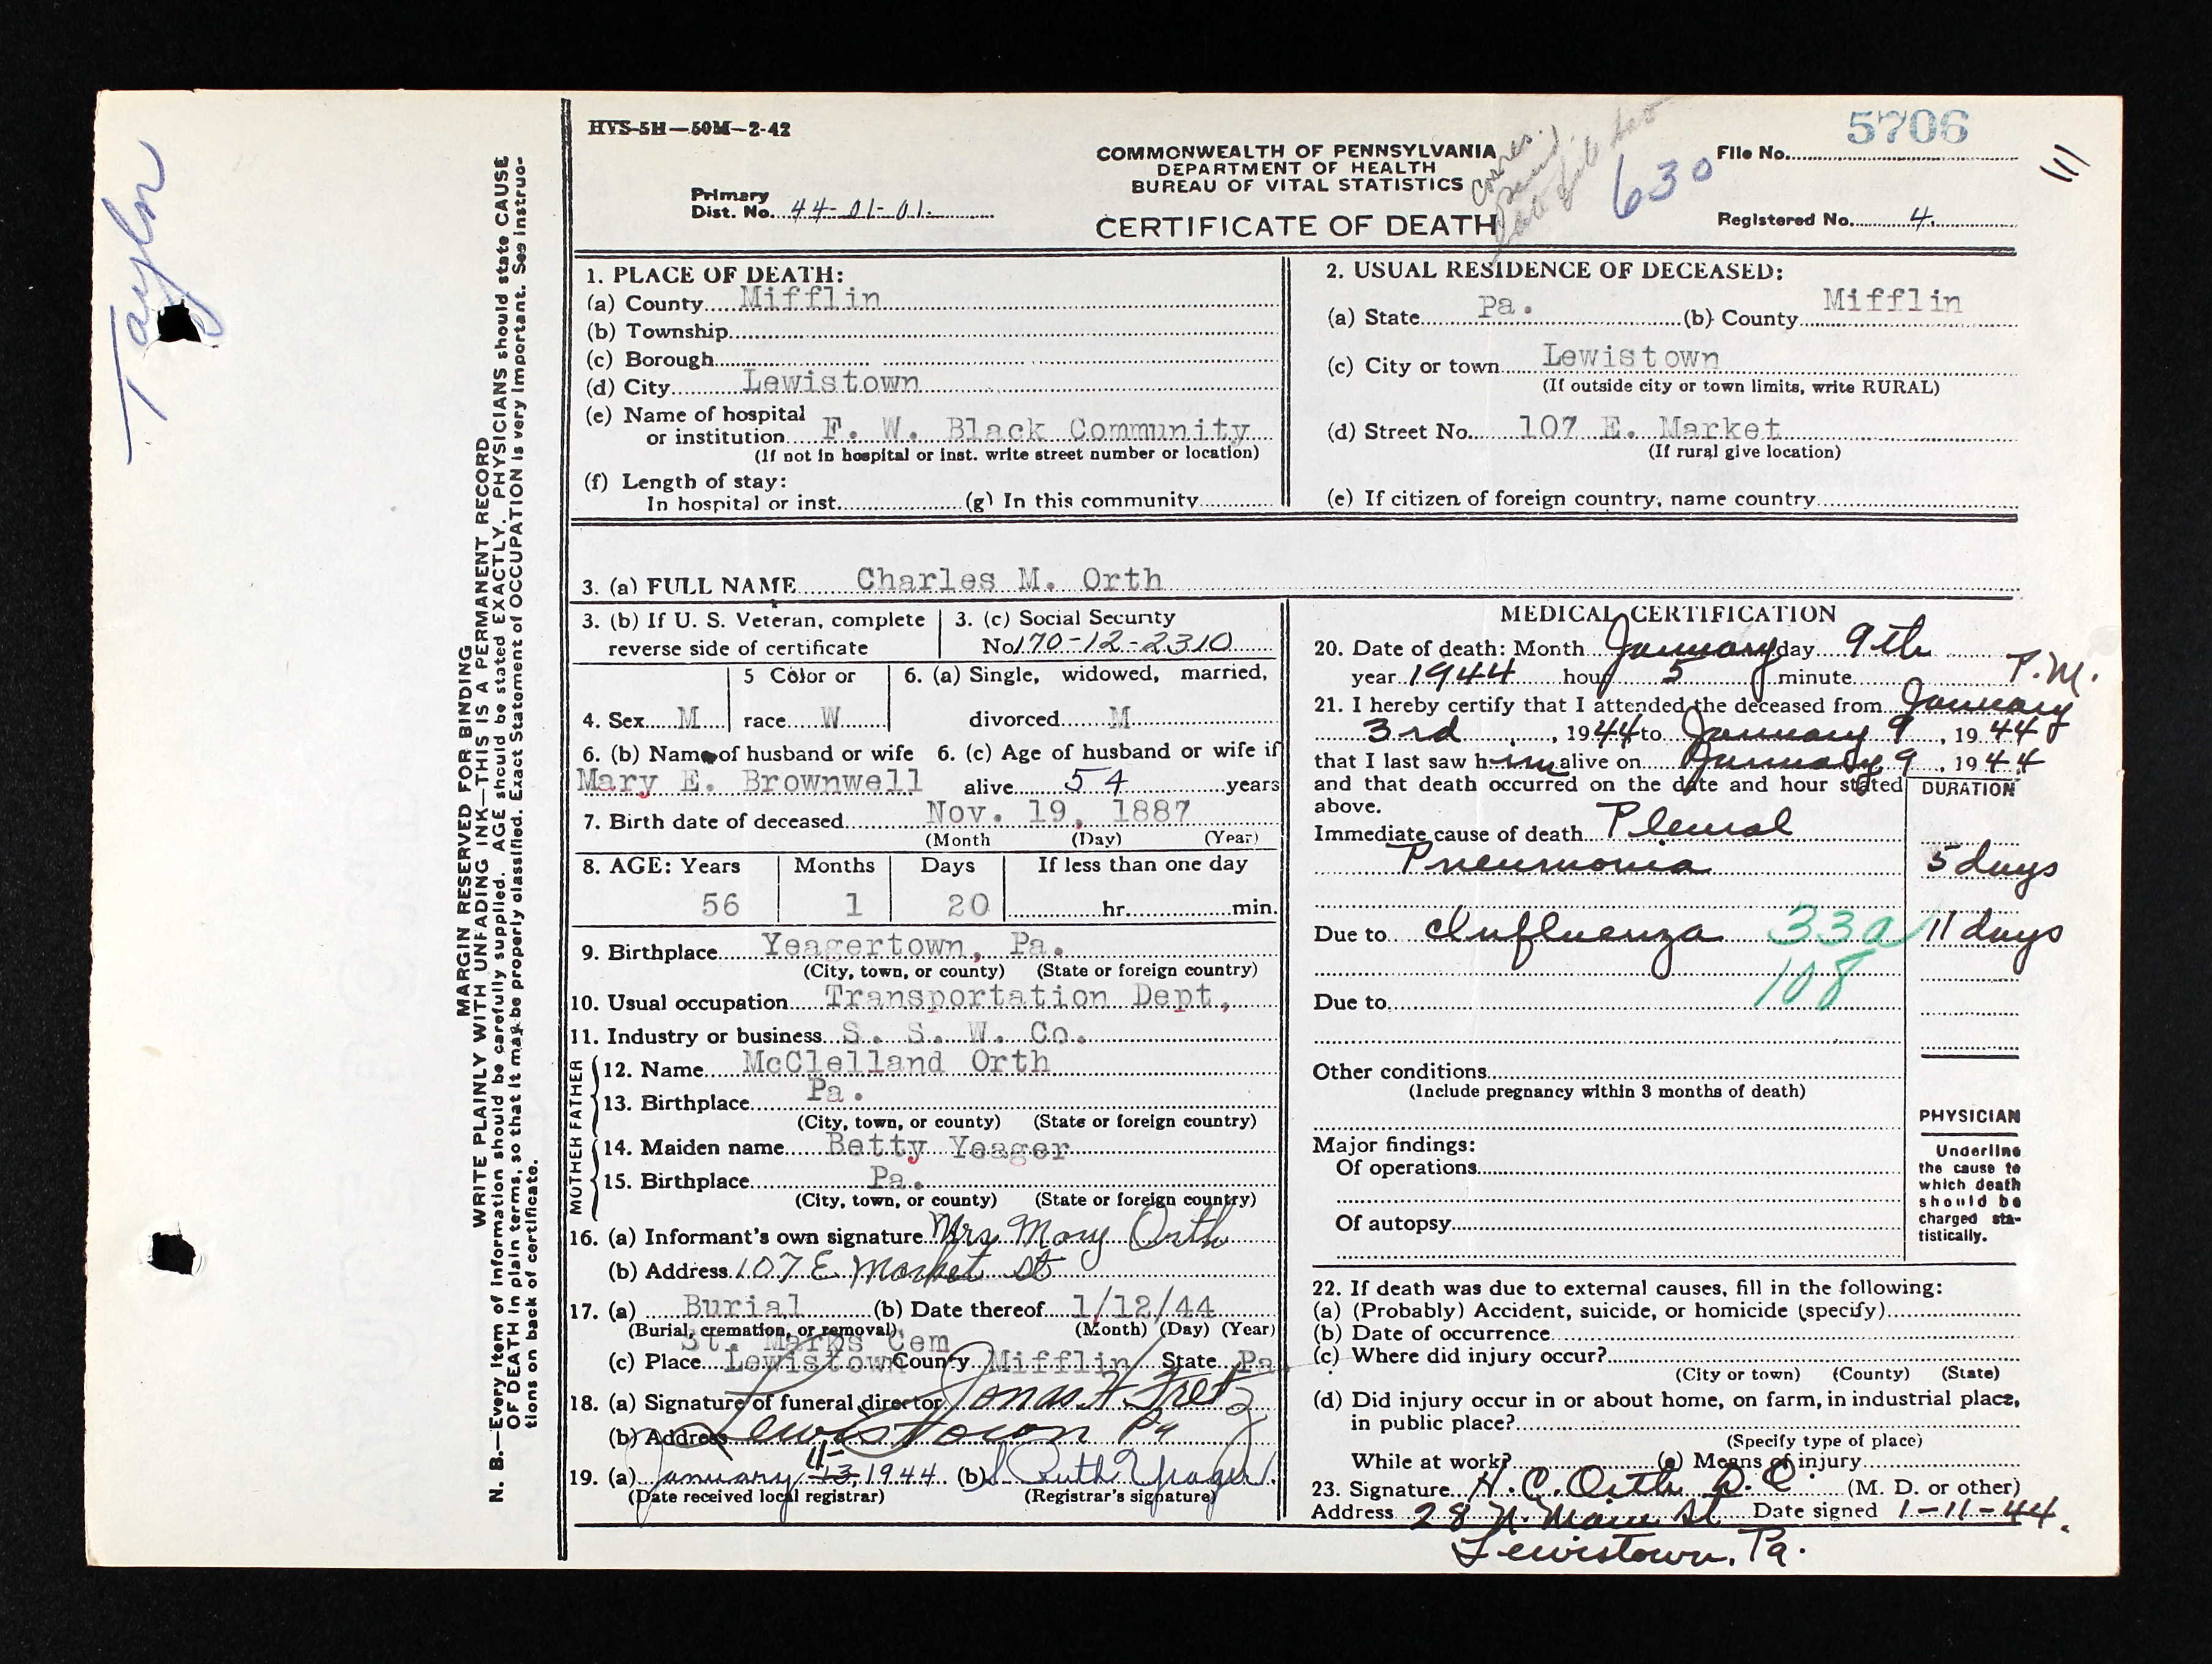 Taylor
MARGIN RESERVED FOR BINDING
WRITE PLAINLY WITH UNFADING INK—THIS IS A PERMANENT RECORD
N. B.—Every item of information should be carefully supplied. AGE should be stated EXACTLY. PHYSICIANS should state CAUSE
OF DEATH in plain terms, so that it may be properly classified. Exact Statement of OCCUPATION is very important. See instruc-
tions on back of certificate.
HVS-5H—50M—2-42
COMMONWEALTH OF PENNSYLVANIA
DEPARTMENT OF HEALTH
BUREAU OF VITAL STATISTICS
CERTIFICATE OF DEATH
Primary
Dist. No. 44-01-01.
Corres.
630
File No. 5706
111
Registered No. 4.
1. PLACE OF DEATH:
(a) County Mifflin
(b) Township
(c) Borough
(d) City Lewistown
(e) Name of hospital
or institution F. W. Black Community
(If not in hospital or inst. write street number or location)
(f) Length of stay:
In hospital or inst. (g) In this community
2. USUAL RESIDENCE OF DECEASED:
(a) State Pa. (b) County Mifflin
(c) City or town Lewistown
(If outside city or town limits, write RURAL)
(d) Street No. 107 E. Market
(If rural give location)
(e) If citizen of foreign country, name country
3. (a) FULL NAME Charles M. Orth
3. (b) If U. S. Veteran, complete
reverse side of certificate
3. (c) Social Security
No. 170-12-2310
4. Sex M
5 Color or
race W
6. (a) Single, widowed, married,
divorced M
6. (b) Name of husband or wife
Mary E. Brownwell
6. (c) Age of husband or wife if
alive 54 years
7. Birth date of deceased Nov. 19, 1887
(Month (Day) (Year)
8. AGE: Years Months Days If less than one day
56 1 20 hr. min.
9. Birthplace Yeagertown, Pa.
(City, town, or county) (State or foreign country)
10. Usual occupation Transportation Dept,
11. Industry or business S. S. W. Co.
FATHER
12. Name McClelland Orth
13. Birthplace Pa.
(City, town, or county) (State or foreign country)
MOTHER
14. Maiden name Betty Yeager
15. Birthplace Pa.
(City, town, or county) (State or foreign country)
16. (a) Informant's own signature Mrs Mary Orth
(b) Address 107 E Market St
17. (a) Burial (b) Date thereof 1/12/44
(Burial, cremation, or removal) (Month) (Day) (Year)
St. Marks Cem
(c) Place Lewistown County Mifflin State Pa.
18. (a) Signature of funeral director Jonas H Fretz
(b) Address Lewistown Pa
19. (a) January 13, 1944 (b) S Ruth Yeager
(Date received local registrar) (Registrar's signature)
MEDICAL CERTIFICATION
20. Date of death: Month January day 9th
year 1944 hour 5 minute P.M.
21. I hereby certify that I attended the deceased from January
3rd, 1944 to January 9, 1944
that I last saw him alive on January 9, 1944
and that death occurred on the date and hour stated
above.
DURATION
Immediate cause of death Pleural
Pneumonia 5 days
Due to Influenza 33a 11 days
108
Due to
Other conditions
(Include pregnancy within 3 months of death)
Major findings:
Of operations
Of autopsy
PHYSICIAN
Underline
the cause to
which death
should be
charged sta-
tistically.
22. If death was due to external causes, fill in the following:
(a) (Probably) Accident, suicide, or homicide (specify)
(b) Date of occurrence
(c) Where did injury occur?
(City or town) (County) (State)
(d) Did injury occur in or about home, on farm, in industrial place,
in public place?
(Specify type of place)
While at work? (e) Means of injury
23. Signature H. C. Orth D. O. (M. D. or other)
Address 28 N. Main St Date signed 1-11-44.
Lewistown, Pa.